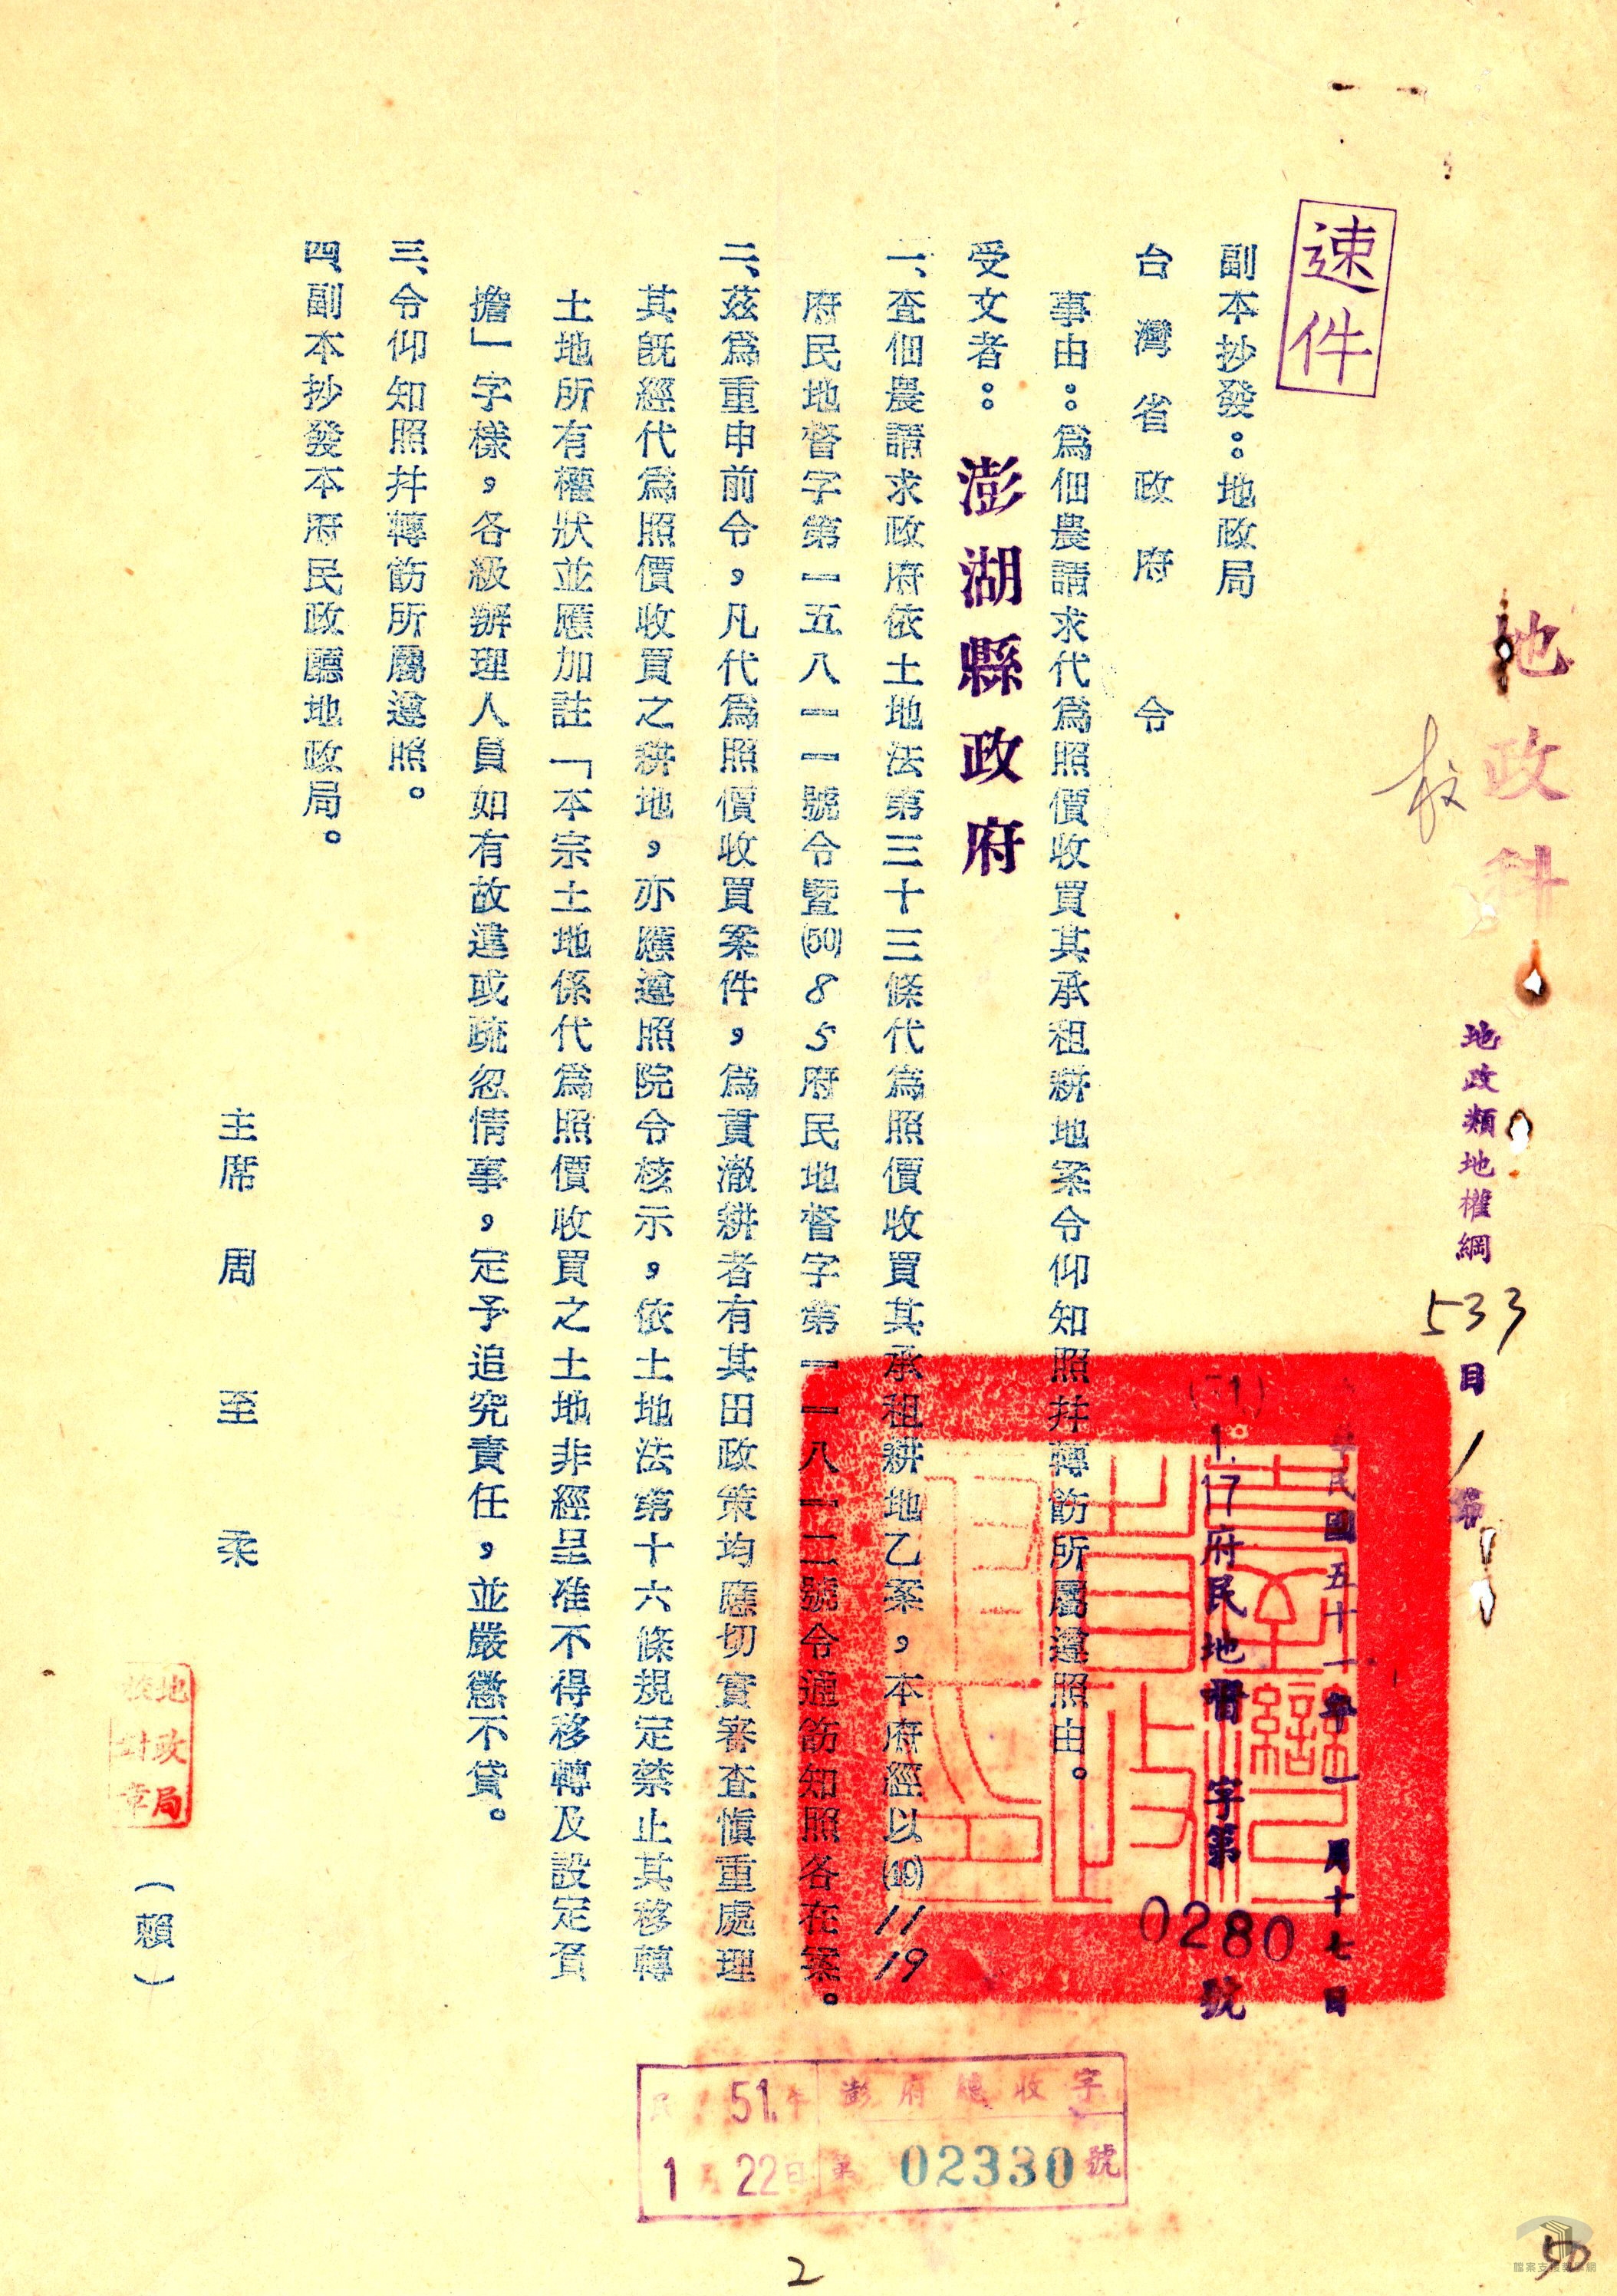 速件
地政科
校
地政類地權綱533目1節
中華民國五十一年一月十七日
(51)1.17府民地督字第0280號
副本抄發：地政局
台灣省政府令
事由：為佃農請求代為照價收買其承租耕地案令仰知照并轉飭所屬遵照由。
受文者：澎湖縣政府
一、查佃農請求政府依土地法第三十三條代為照價收買其承租耕地乙案，本府經以(49)11 19
府民地督字第一五八一一號令暨(50)8 5府民地督字第一一八一二號令通飭知照各在案。
二、茲為重申前令，凡代為照價收買案件，為貫澈耕者有其田政策均應切實審查慎重處理
其既經代為照價收買之耕地，亦應遵照院令核示，依土地法第十六條規定禁止其移轉
土地所有權狀並應加註「本宗土地係代為照價收買之土地非經呈准不得移轉及設定負
擔」字樣，各級辦理人員如有故違或疏忽情事，定予追究責任，並嚴懲不貸。
三、令仰知照并轉飭所屬遵照。
四、副本抄發本府民政廳地政局。
主席 周至柔
地政局校對章
（賴）
民 51年 1月22日
澎府總收字第02330號
2
50
檔案支援教學網